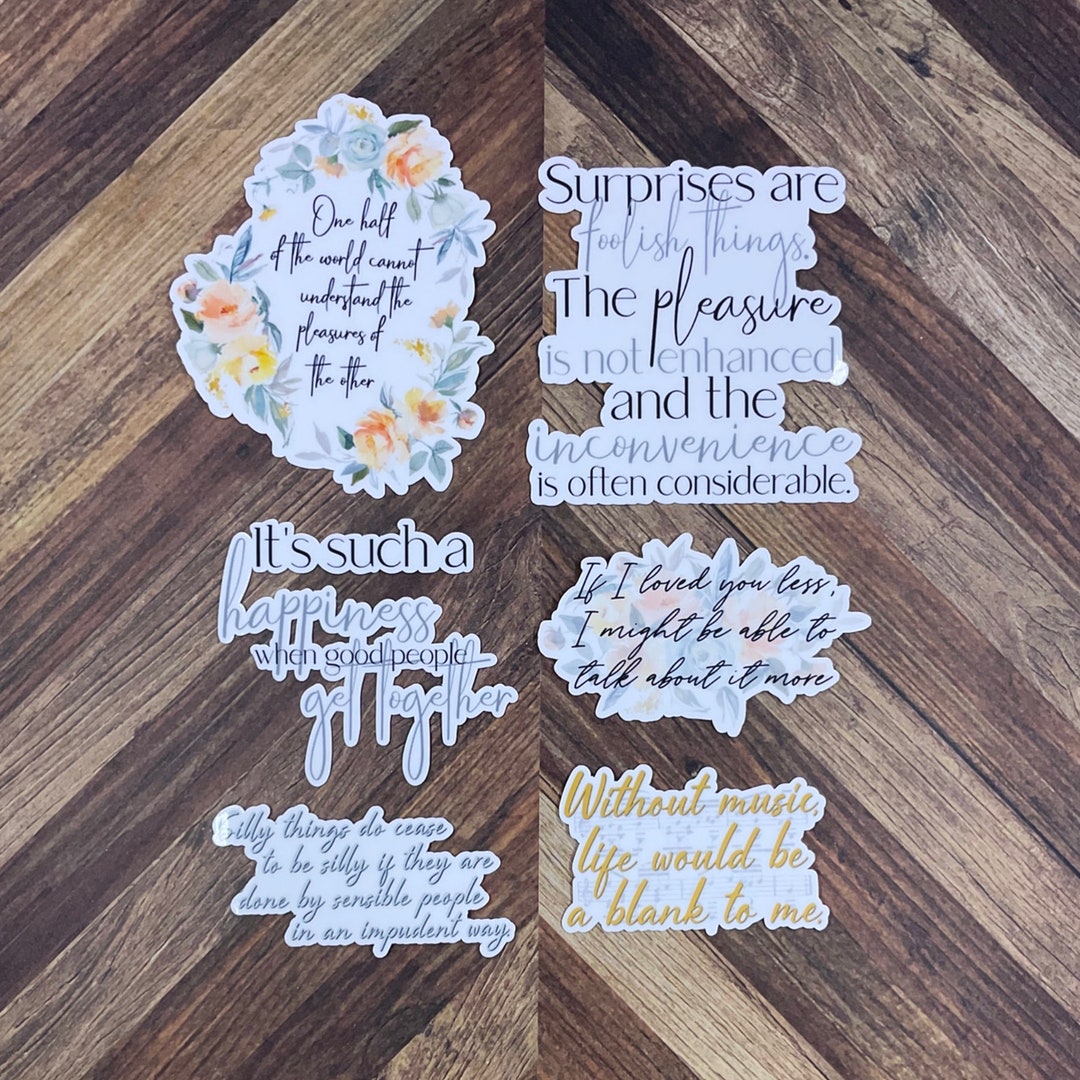 One half
of the world cannot
understand the
pleasures of
the other
Surprises are
foolish things.
The pleasure
is not enhanced
and the
inconvenience
is often considerable.
It's such a
happiness
when good people
get together
If I loved you less,
I might be able to
talk about it more
Silly things do cease
to be silly if they are
done by sensible people
in an impudent way.
Without music,
life would be
a blank to me.